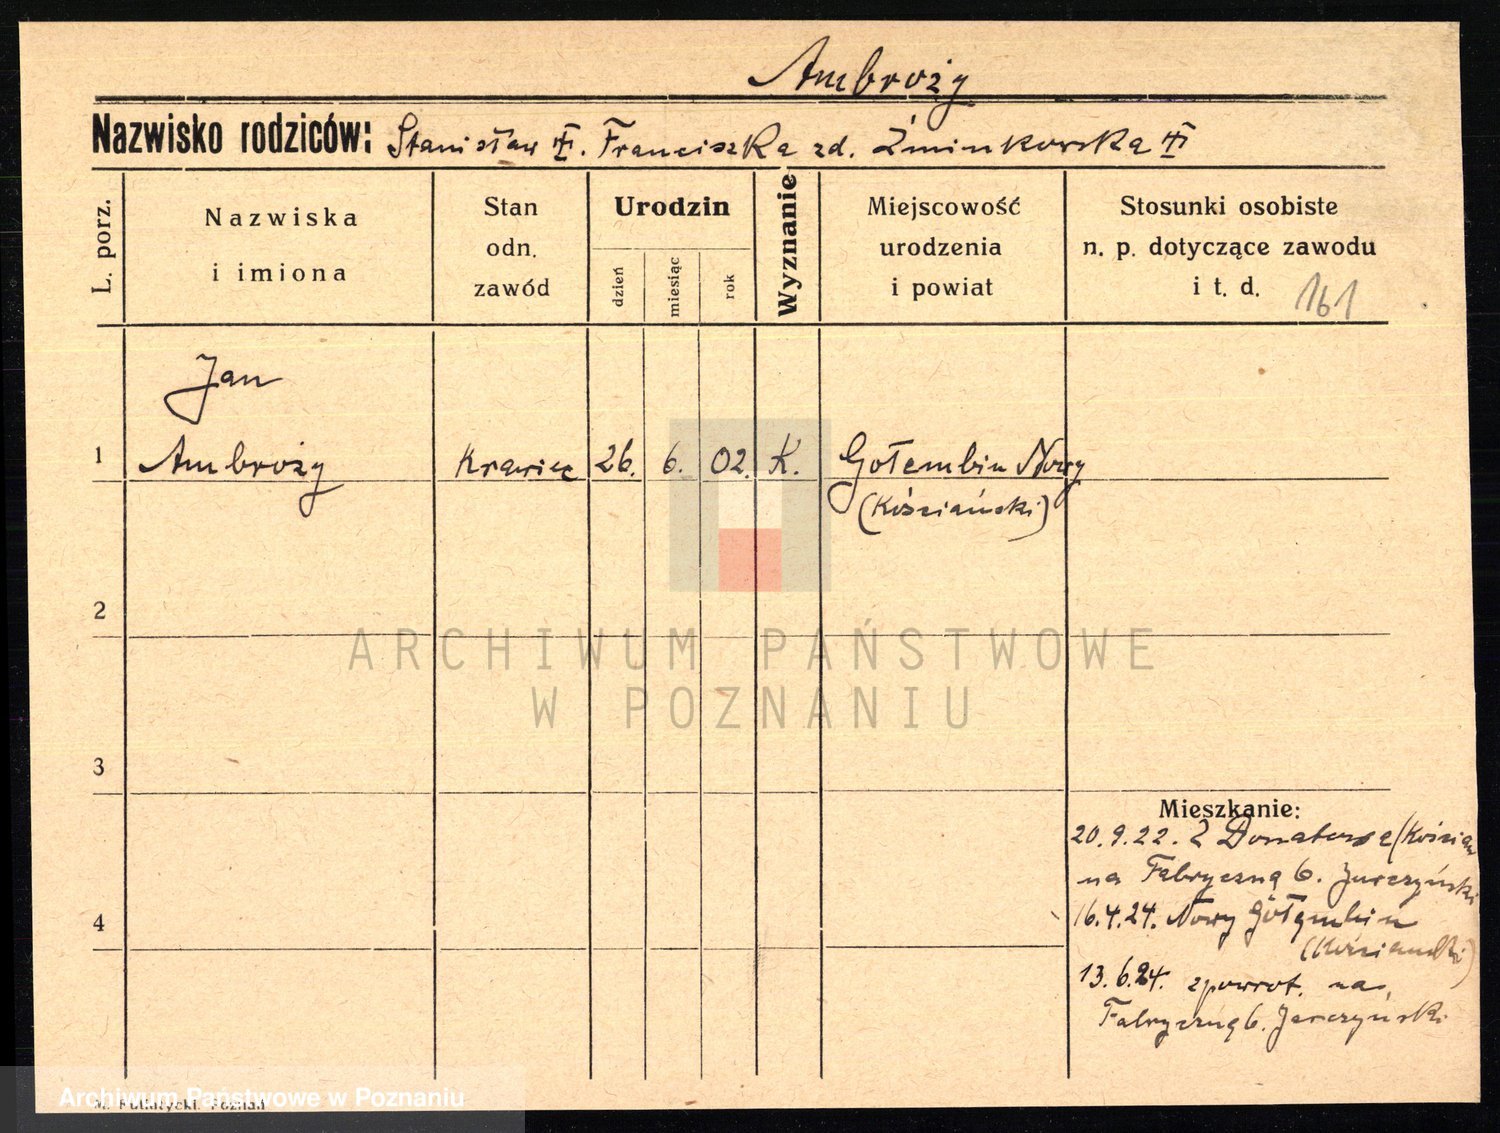 Ambroży
Nazwisko rodziców: Stanisław. Franciszka zd. Żminkowska
L. porz.
Nazwiska
i imiona
Stan
odn.
zawód
Urodzin
dzień
miesiąc
rok
Wyznanie
Miejscowość
urodzenia
i powiat
Stosunki osobiste
n. p. dotyczące zawodu
i t. d.
161
Jan
1 Ambroży Krawiec 26. 6. 02. K. Gołembin Nowy
(Kościański)
2
ARCHIWUM PAŃSTWOWE
W POZNANIU
3
Mieszkanie:
20.9.22. Z Donatowa (Kościan
na Fabryczną 6. Jurczyński
4
16.4.24. Nowy Gołembin
(Kościański)
13.6.24. zpowrot. na
Fabryczną 6. Jarczyński
Archiwum Państwowe w Poznaniu
M. Putiatycki. Poznań